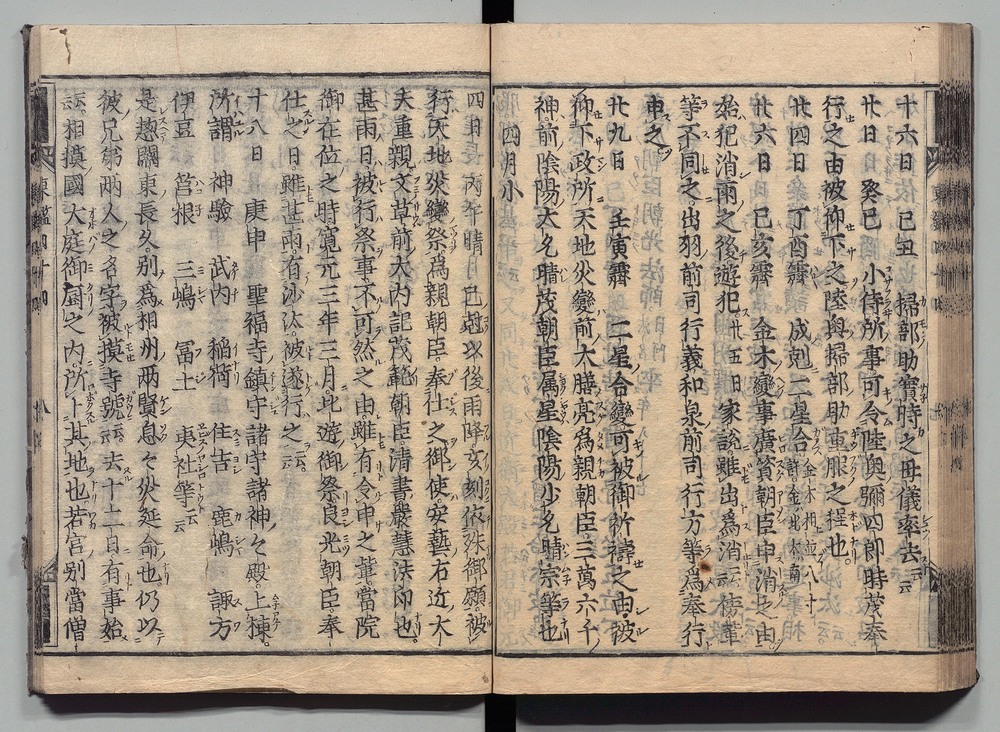 十六日 己丑 掃部助實時之母儀率去云云
廿日 癸巳 小侍所事可令陸奥弥四郎時茂奉
行之由被仰下之陸奥掃部助重服之程也
廿四日 丁酉霽 成剋二星合金木相並八寸
廿六日 己亥霽 金木變事廣資朝臣申消也由
始犯消雨之後遊犯廿五日家説雖出為消云云傍輩
等不同之出羽前司行義和泉前司行方等為奉行
申之
廿九日 壬寅霽 二星合變可被御所禱之由被
仰下政所天地災變前大膳亮為親朝臣三萬六千
神前陰陽大允晴茂朝臣属星陰陽少允晴宗等也
四月小
四日 丙午晴月已剋以後雨降亥刻依殊御願被
行天地災變祭為親朝臣奉仕之御使安藝右近大
夫重親文草前大内記茂範朝臣清書嚴慧法印也
甚雨日被行祭事不可然之由雖有令申之輩當院
御在位之時寛元三年三月此遊御祭良光朝臣奉
仕之日雖甚雨有沙汰被遂行之云云
十八日 庚申 聖福寺鎮守諸守諸神々殿上棟
所謂 神驗 武内 稲荷 住吉 鹿嶋 諏方
伊豆 筥根 三嶋 冨士 夷社等云云
是惣關東長久別為相州兩賢息々災延命也仍以
彼兄弟兩人之名字被摸寺號云云去十二日有事始
云云相摸國大庭御厨之内所卜其地也若宮別當僧